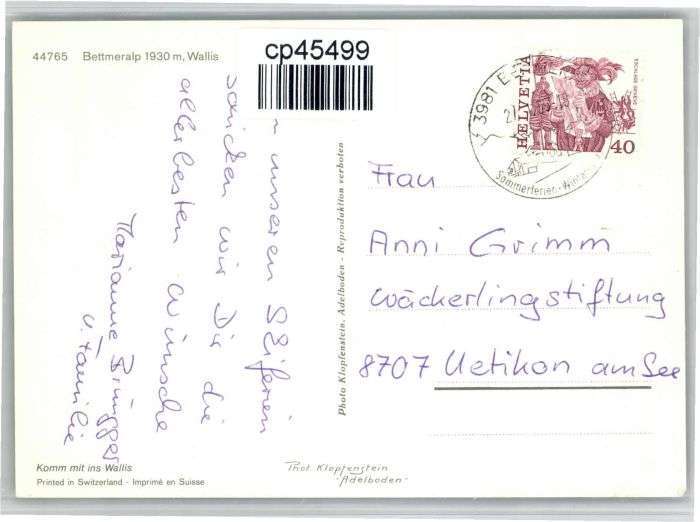 44765 Bettmeralp 1930 m, Wallis
cp45499
unseren Skiferien
schicken wir Dir die
allerbesten Wünsche
Marianne Brügger
u. Familie
Photo Klopfenstein, Adelboden - Reproduktion verboten
HELVETIA
40
3981
Sommerferien - Winter
Frau
Anni Grimm
Wäckerlingstiftung
8707 Uetikon am See
Komm mit ins Wallis
Printed in Switzerland - Imprimé en Suisse
Phot. Klopfenstein
"Adelboden"